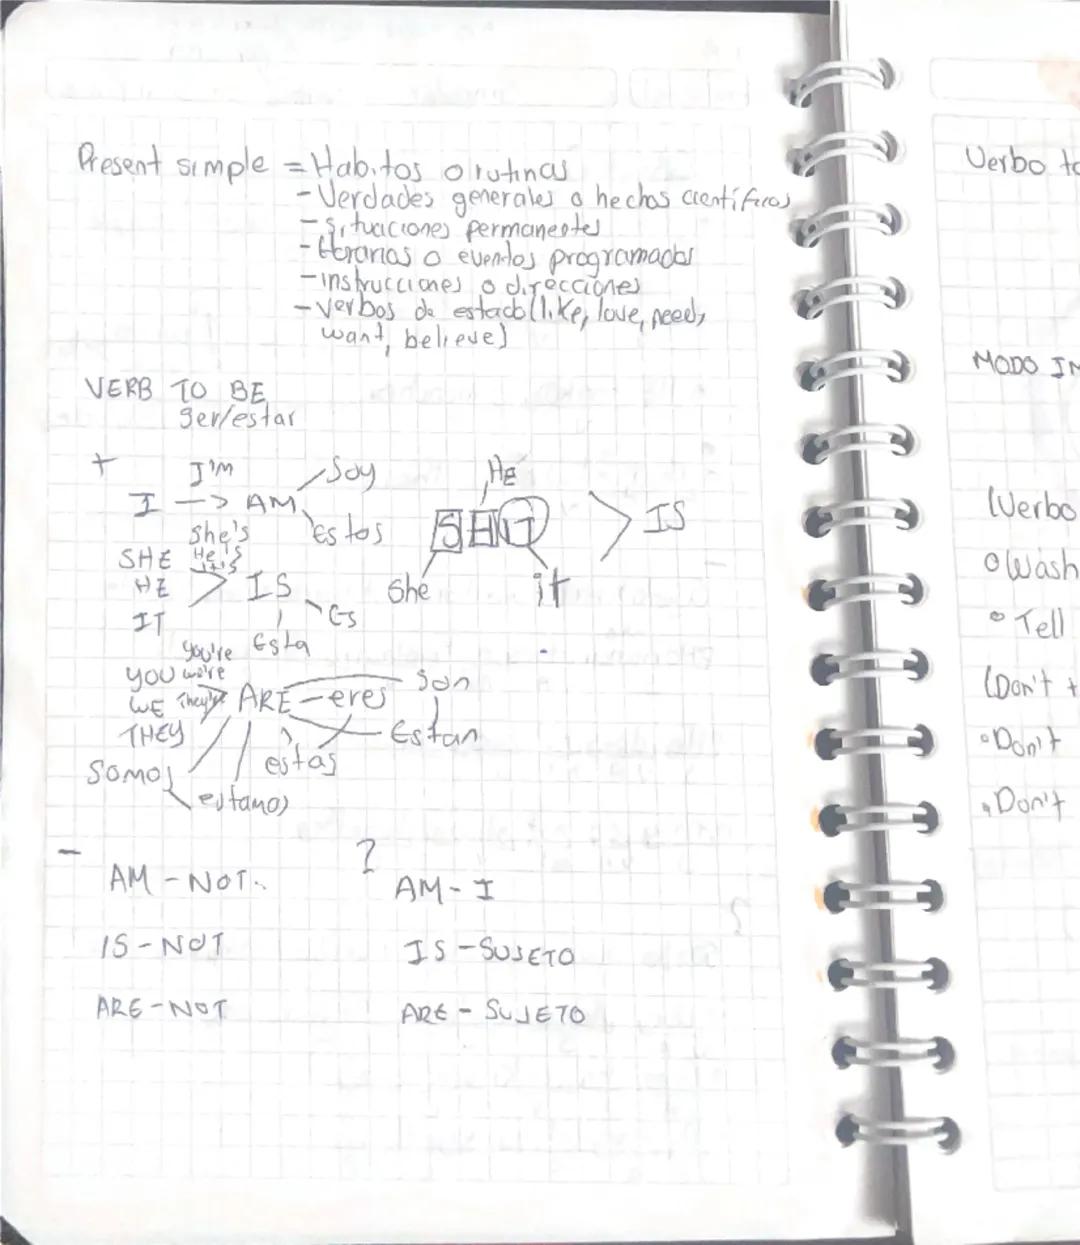 Present simple = Habitos o rutinas
- Verdades generales o hechos científicos
- Situaciones permanentes
- Horarios o eventos programados
- instrucciones o direcciones
- verbos de estado (like, love, need,
want, believe)
VERB TO BE
Ser/estar
+
I'm
I -> AM
Soy
Estos
She's
He's
It's
SHE
HE
IT
> IS
Es
Esta
He
SHIT
She
it
> IS
You're
we're
They're
YOU
WE
THEY
ARE - eres
Son
Estan
estas
Somos
estamos
-
AM - NOT.
IS - NOT
ARE - NOT
?
AM - I
IS - SUJETO
ARE - SUJETO
Verbo to
MODO IM
(Verbo
o Wash
o Tell
(Don't +
o Don't
o Don't